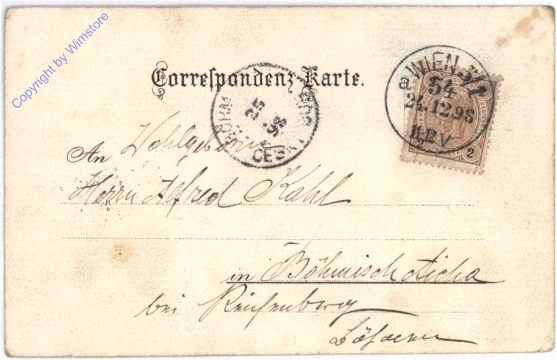 Copyright by Wimstore
Correspondenz-Karte.
WIEN 3/2
54
24.12.98
11-12 V
2
BÖHM
25
98
CESK
An Wohlgeboren
Herrn Alfred Kahl
in Böhmisch Aicha
bei Reichenberg
Böhmen